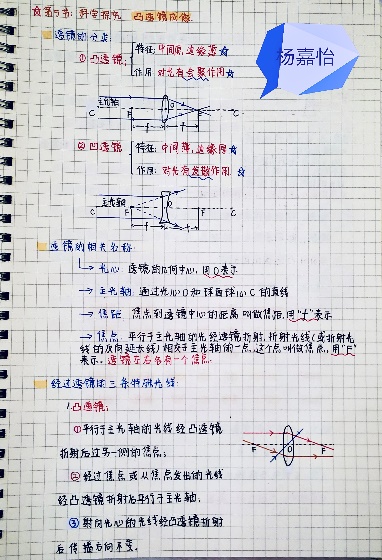 第五节: 科学探究 凸透镜成像
杨嘉怡
透镜的分类
① 凸透镜 特征: 中间厚,边缘薄
作用: 对光有会聚作用
主光轴
C F O F C
f f
② 凹透镜 特征: 中间薄,边缘厚
作用: 对光有发散作用
主光轴
C F O F C
f f
透镜的相关名称
→ 光心: 透镜的几何中心,用O表示
→ 主光轴: 通过光心O和球面球心C的直线
→ 焦距: 焦点到透镜中心的距离叫做焦距,用"f"表示
→ 焦点: 平行于主光轴的光经透镜折射,折射光线(或折射光
线的反向延长线)相交于主光轴的一点,这个点叫做焦点,用"F"
表示. 透镜左右各有一个焦点.
经过透镜的三条特殊光线:
1.凸透镜:
①平行于主光轴的光线经凸透镜
折射后过另一侧的焦点;
②经过焦点或从焦点发出的光线
经凸透镜折射后平行于主光轴.
③射向光心的光线经凸透镜折射
后传播方向不变.
F O F